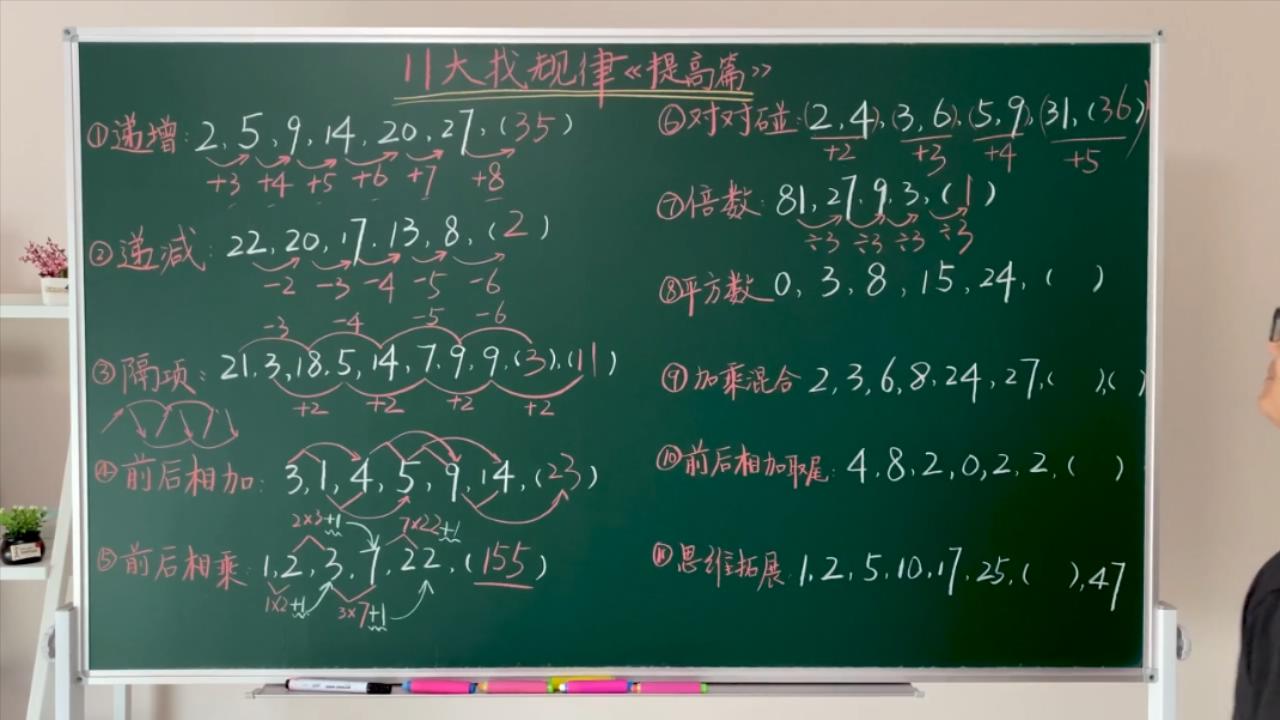 11大找规律《提高篇》
①递增：2，5，9，14，20，27，（35）
+3 +4 +5 +6 +7 +8
②递减：22，20，17，13，8，（2）
-2 -3 -4 -5 -6
-3 -4 -5 -6
③隔项：21，3，18，5，14，7，9，9，（3），（11）
+2 +2 +2 +2
④前后相加：3，1，4，5，9，14，（23）
2×3+1 7×22+1
⑤前后相乘：1，2，3，7，22，（155）
1×2+1 3×7+1
⑥对对碰：（2，4），（3，6），（5，9），（31，（36））
+2 +3 +4 +5
⑦倍数：81，27，9，3，（1）
÷3 ÷3 ÷3 ÷3
⑧平方数 0，3，8，15，24，（ ）
⑨加乘混合 2，3，6，8，24，27，（ ），（ ）
⑩前后相加取尾：4，8，2，0，2，2，（ ）
⑪思维拓展：1，2，5，10，17，25，（ ），47